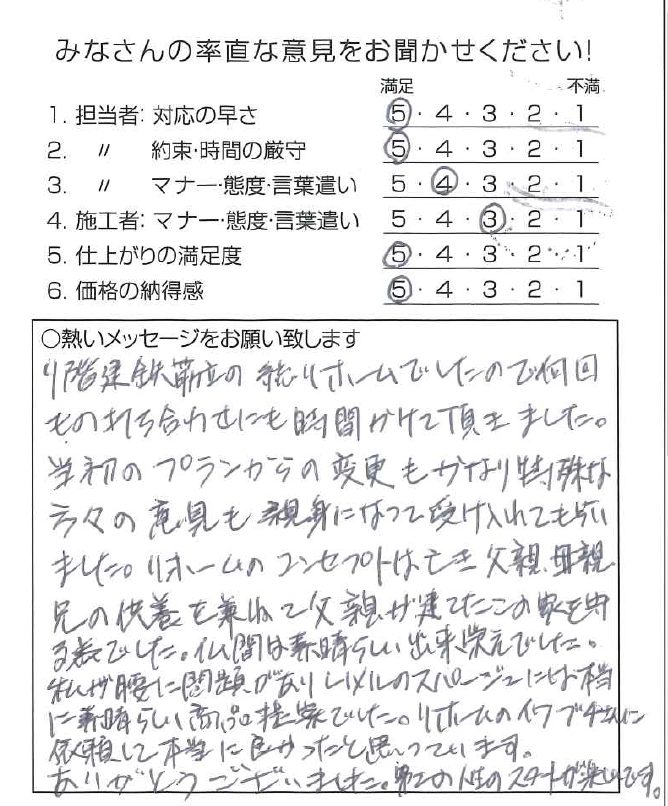 みなさんの率直な意見をお聞かせください!
満足 不満
1. 担当者: 対応の早さ 5・4・3・2・1
2. 〃 約束・時間の厳守 5・4・3・2・1
3. 〃 マナー・態度・言葉遣い 5・4・3・2・1
4. 施工者: マナー・態度・言葉遣い 5・4・3・2・1
5. 仕上がりの満足度 5・4・3・2・1
6. 価格の納得感 5・4・3・2・1
○熱いメッセージをお願い致します
階建鉄筋の総リホームでしたので何回
もの打ち合わせにも時間かけて頂きました。
当初のプランからの変更もかなり特殊な
方々の意見も親身になって受け入れてもらい
ました。リホームのコンセプトは亡き父親、母親
兄の供養を兼ねて父親が建てたこの家を守
る為でした。仏間は素晴らしい出来栄えでした。
私が腰に問題がありのスペースには本当
に素晴らしい商品提案でした。リホームのイワブチさんに
依頼して本当に良かったと思っています。
ありがとうございました。第2の人生のスタートが楽しみです。